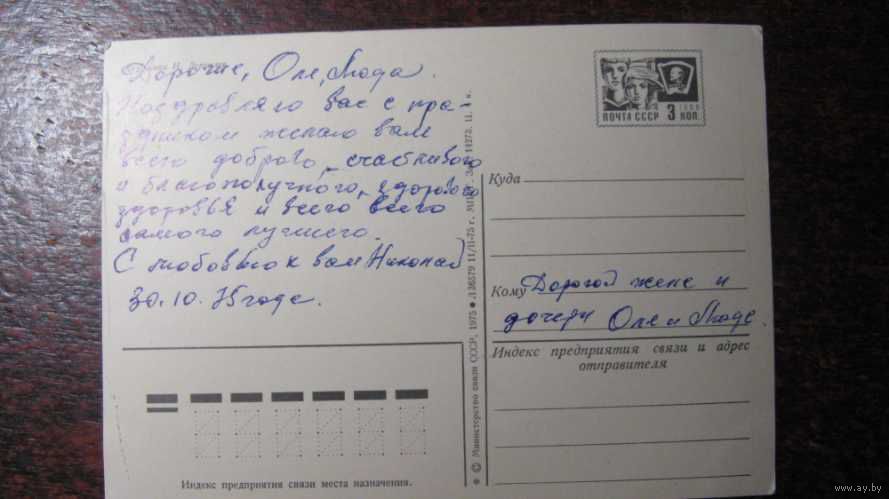 Дорогие, Оля, Люда.
Поздравляю вас с пра-
здником желаю вам
всего доброго, счасливого
и благополучного, здорового
здоровья и всего всего
самого лучшего.
С любовью к вам Николай
30.10.75 года.
ПОЧТА СССР 3 КОП.
1966
Куда
Кому Дорогой жене и
дочери Оле и Люде.
Индекс предприятия связи и адрес
отправителя
Индекс предприятия связи места назначения.
© Министерство связи СССР, 1975 ● Л36579 11/II-75 г. 14273. Ц. к.
www.ay.by